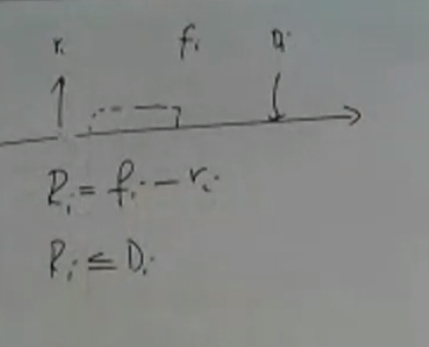 rᵢ fᵢ dᵢ
Rᵢ = fᵢ - rᵢ
Rᵢ ≤ Dᵢ